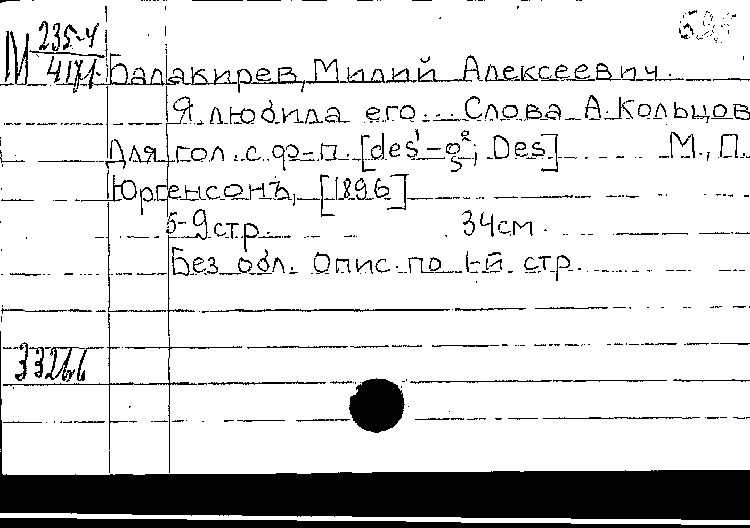 М 235-4
4171
Балакирев, Милий Алексеевич.
Я любила его... Слова А. Кольцов
Для гол. с ф-п. [des¹-g²; Des] М., П.
Юргенсонъ, [1896]
5-9 стр. 34см.
Без обл. Опис. по 1-й стр.
33266